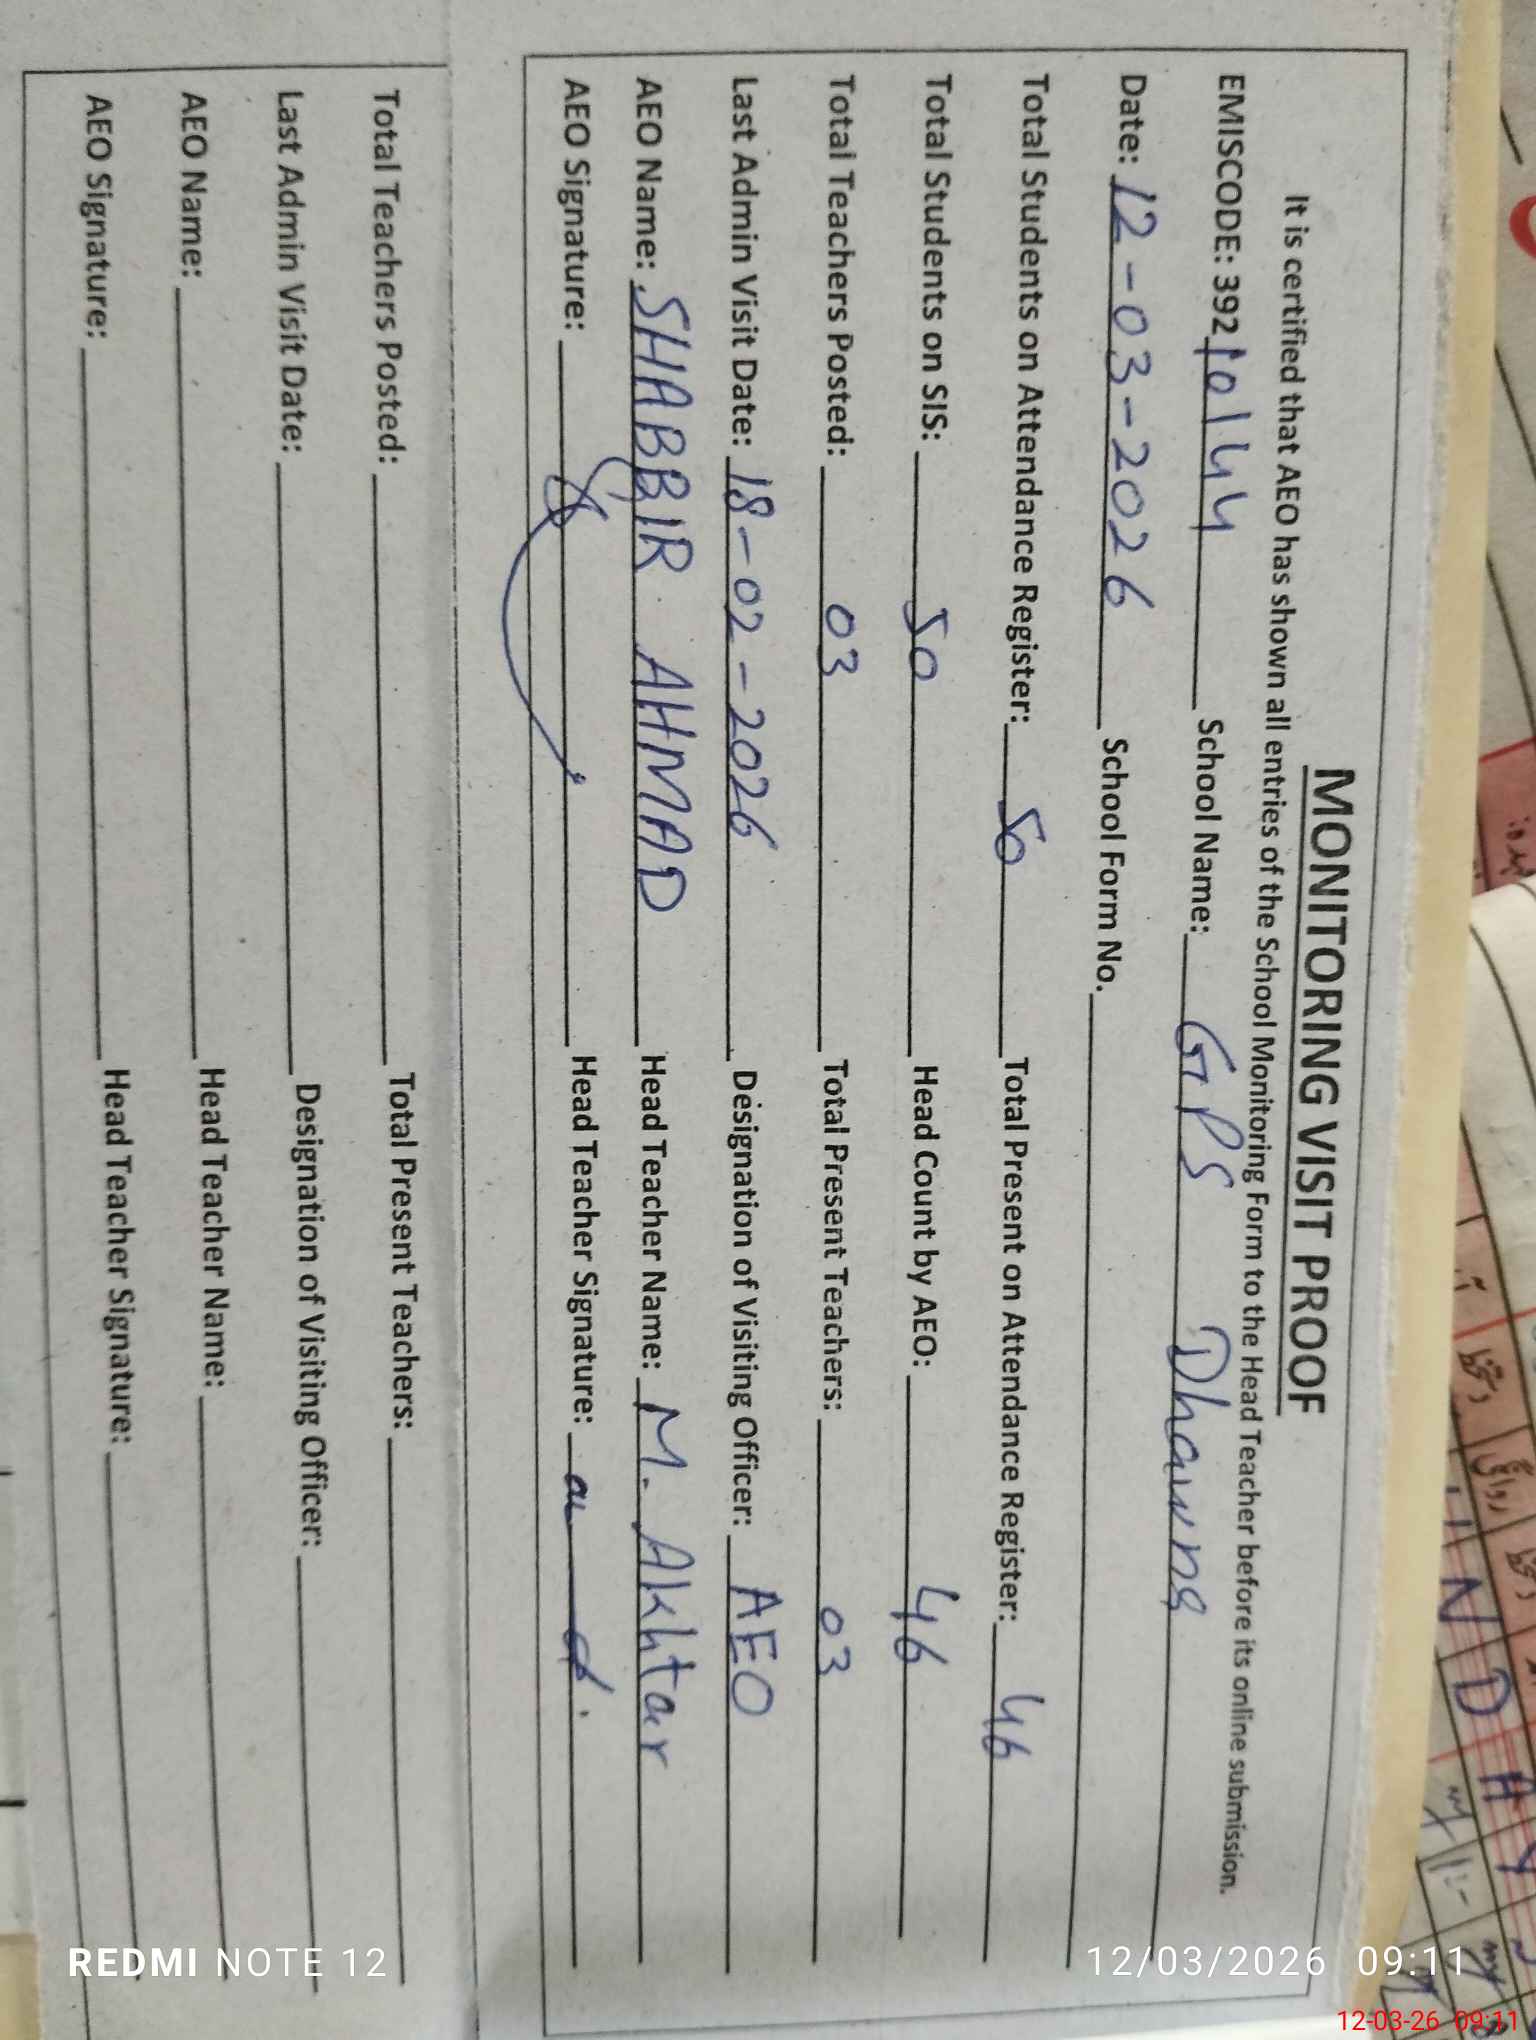 MONITORING VISIT PROOF
It is certified that AEO has shown all entries of the School Monitoring Form to the Head Teacher before its online submission.
EMISCODE: 39210144 School Name: GPS Dhawns
Date: 12-03-2026 School Form No.
Total Students on Attendance Register: 50 Total Present on Attendance Register: 46
Total Students on SIS: 50 Head Count by AEO: 46
Total Teachers Posted: 03 Total Present Teachers: 03
Last Admin Visit Date: 18-02-2026 Designation of Visiting Officer: AEO
AEO Name: SHABBIR AHMAD Head Teacher Name: M. Akhtar
AEO Signature: Head Teacher Signature:
Total Teachers Posted: Total Present Teachers:
Last Admin Visit Date: Designation of Visiting Officer:
AEO Name: Head Teacher Name:
AEO Signature: Head Teacher Signature:
REDMI NOTE 12
12/03/2026 09:11
12-03-26 09:11